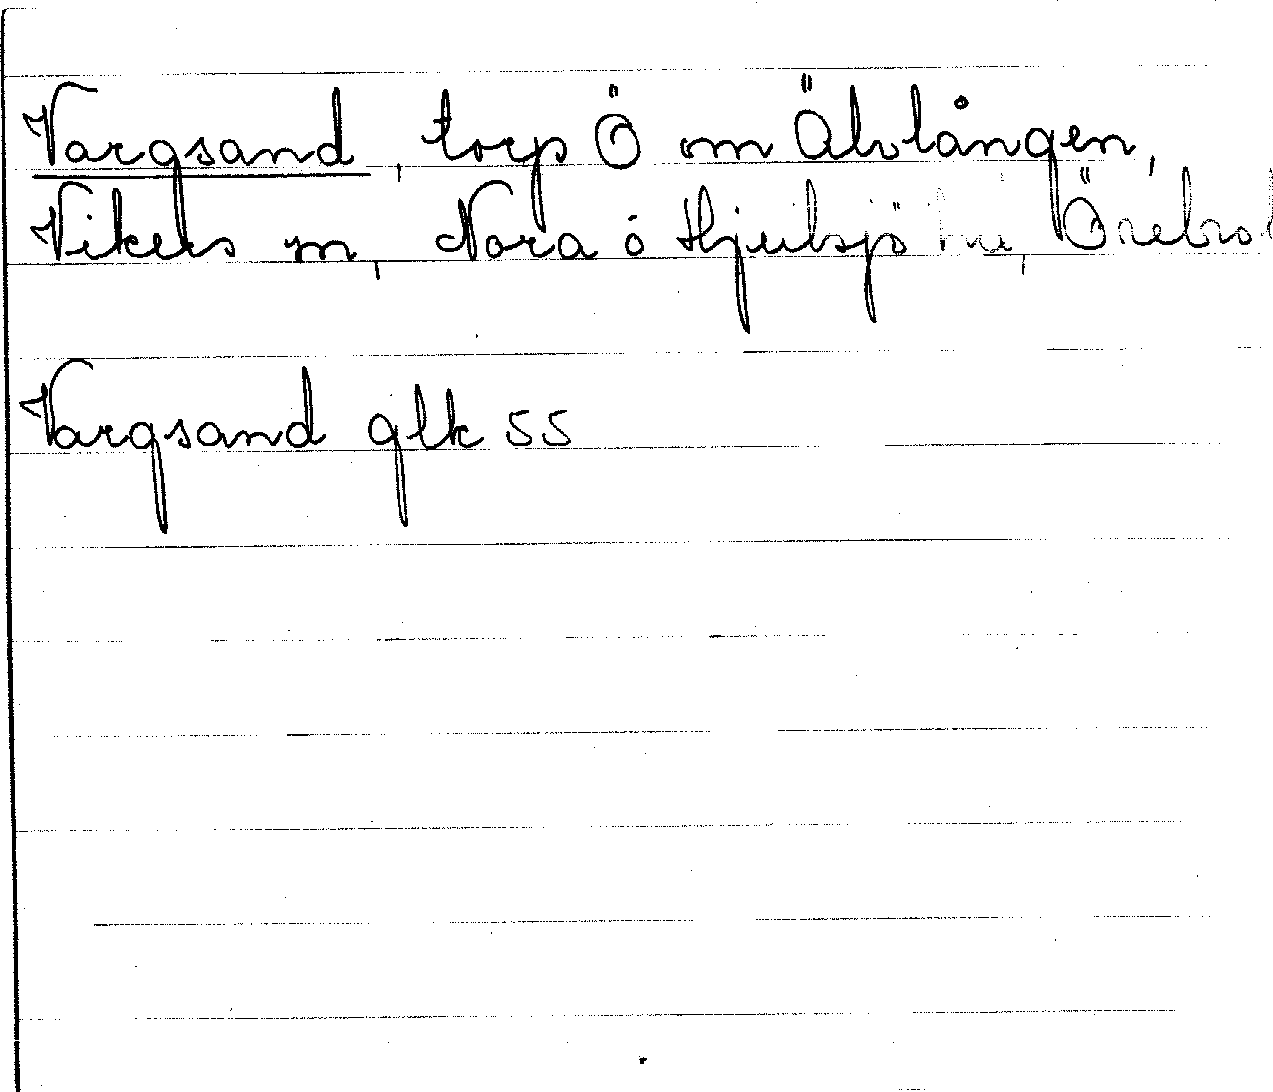 Vargsand, torp Ö om Älvlången,
Vikers sn, Nora o Hjulsjö hd, Örebro l
Vargsand glk 55